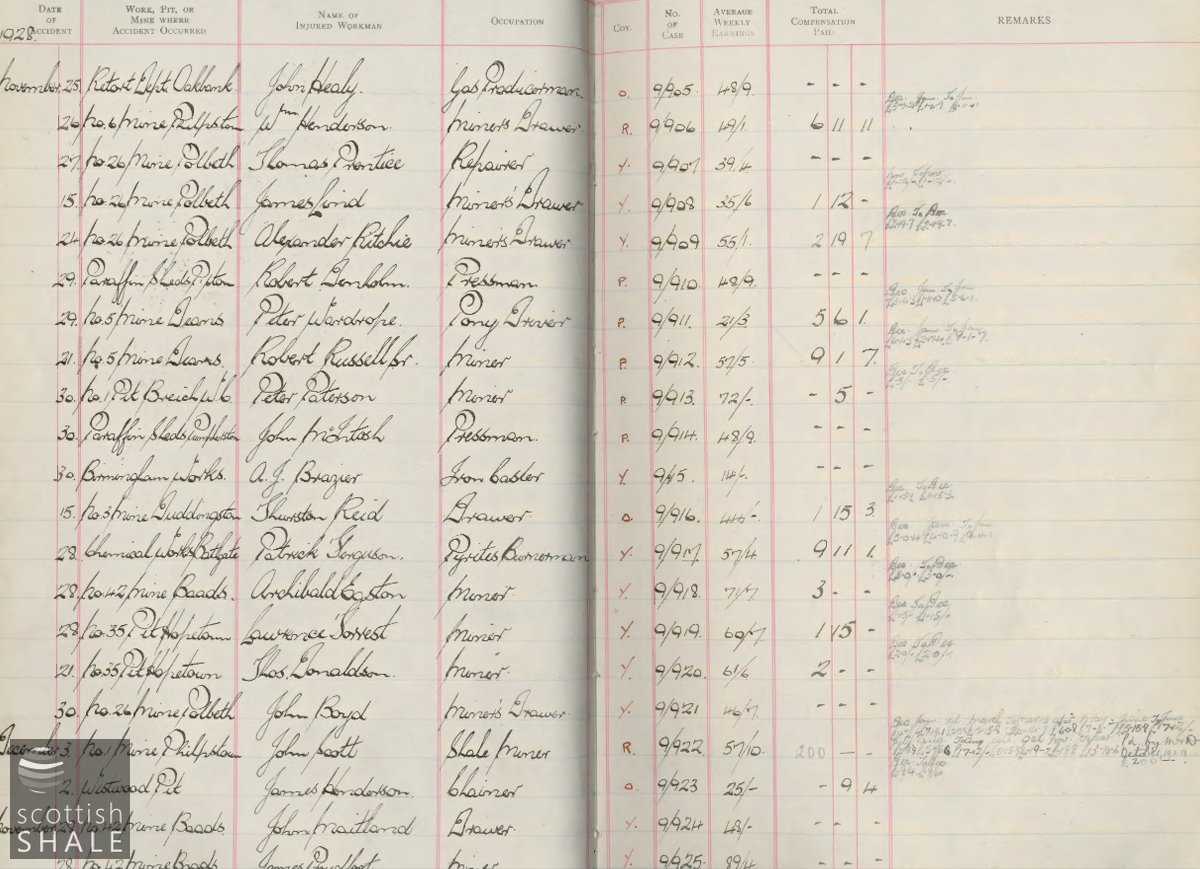 DATE OF ACCIDENT WORK, PIT, OR MINE WHERE ACCIDENT OCCURRED NAME OF INJURED WORKMAN OCCUPATION COY. NO. OF CASE AVERAGE WEEKLY EARNINGS TOTAL COMPENSATION PAID REMARKS
1928.
November 25 Retort Dept. Oakbank. John Healy. Gas Producerman. O. 9/905 48/9. - - -
26 No. 6 Mine, Philpston Wm Henderson. Miner's Drawer. R. 9/906 49/1. 6 11 11
27. No. 26 Mine, Polbeth Thomas Prentice Repairer Y. 9/907 39/4. - - -
15. No. 26 Mine, Polbeth James Lind Miner's Drawer Y. 9/908 35/6 1 12 -
24 No. 26 Mine, Polbeth Alexander Ritchie Miner's Drawer. Y. 9/909 55/1. 2 19 7
29. Paraffin Sheds, P'pton Robert Denholm. Pressman P. 9/910. 48/9. - - -
29. No. 5 Mine Deans Peter Wardrope. Pony Driver P. 9/911. 21/3 5 6 1.
21. No. 5 Mine Deans Robert Russell Sr. Miner P. 9/912. 57/5. 9 1 7.
30. No. 1 Pit Breich W.C. Peter Paterson Miner P. 9/913. 72/-. - 5 -
30. Paraffin Sheds, Pumpherston John McIntosh Pressman. P. 9/914. 48/9. - - -
30. Birmingham Works. A. J. Brazier Iron Caster Y. 9/915. 14/-. - - -
15. No. 3 Mine Duddingston Thurston Reid Drawer O. 9/916. 44/-. 1 15 3.
28. Chemical Works, Bathgate Patrick Ferguson. Pyrites Burnerman Y. 9/917. 57/4 9 11 1.
28. No. 42 Mine Baads. Archibald Egston Miner. Y. 9/918. 71/7 3 - -
28 No. 35 Pit Hopetoun Lawrence Torrest Miner Y. 9/919. 60/7 1 15 -
21. No. 35 Pit Hopetoun Thos. Donaldson. Miner. Y. 9/920. 61/6 2 - -
30. No. 26 Mine, Polbeth John Boyd Miner's Drawer. Y. 9/921 46/7. - - -
December 3 No. 1 Mine Philpstoun John Scott Shale Miner R. 9/922. 57/10. 200 - -
2. Westwood Pit James Henderson. Chainer O 9/923 25/- - 9 4
November 28 No. 42 Mine Baads John Maitland Drawer. Y. 9/924 48/- - - -
28. No. 42 Mine Baads James Proudfoot Miner Y. 9/925. 89/4 - - -
scottish
SHALE